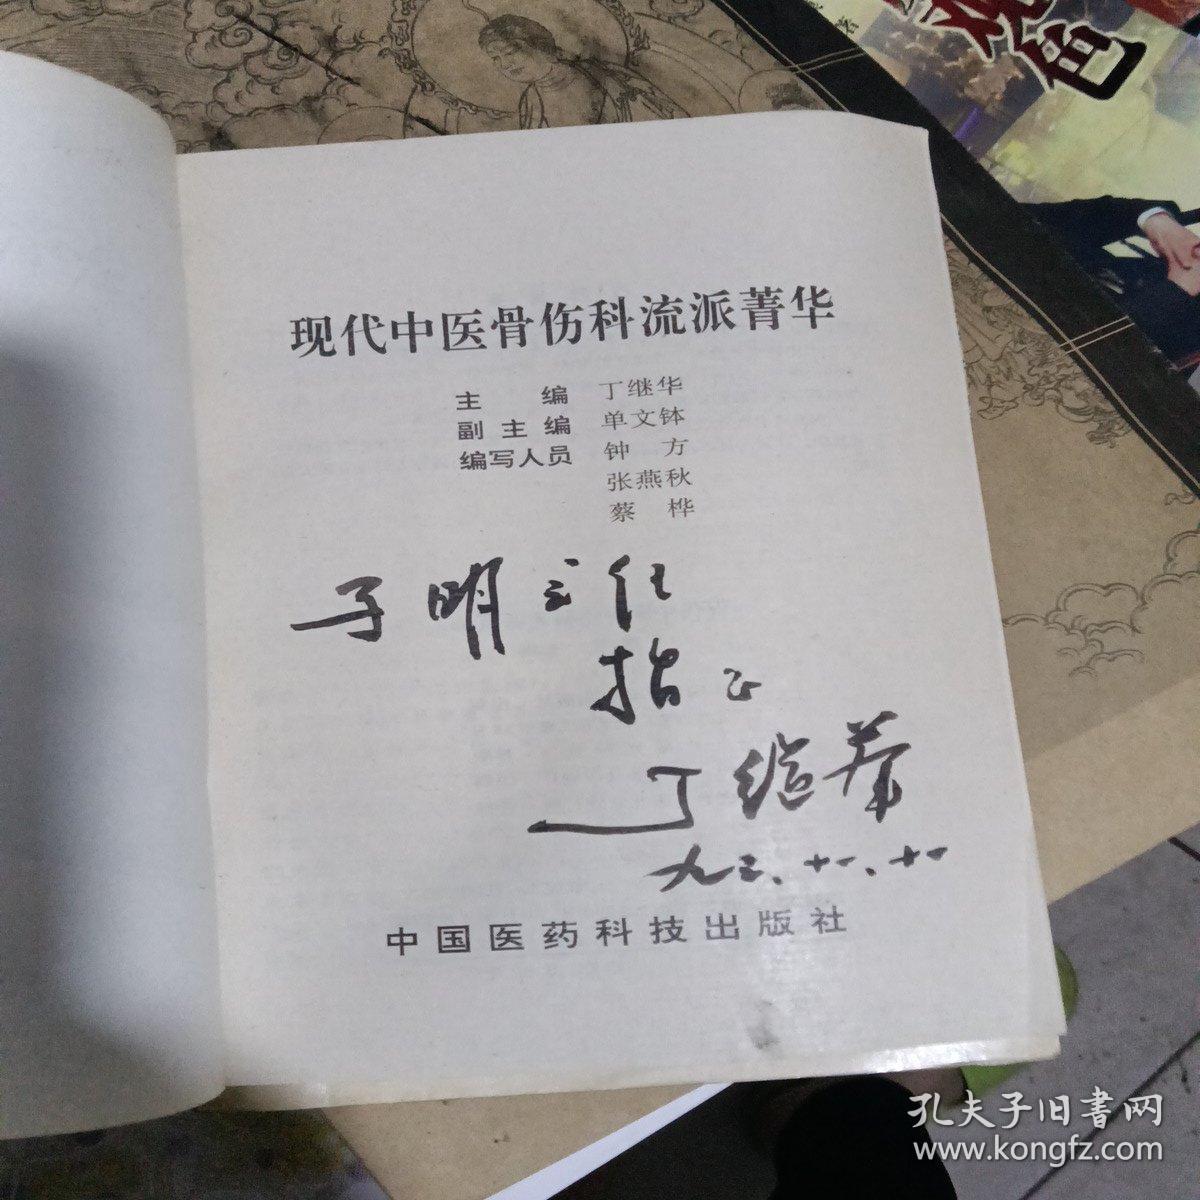 现代中医骨伤科流派菁华
主编 丁继华
副主编 单文钵
编写人员 钟方
张燕秋
蔡桦
子明主任
指正
丁继华
九三.十一.十一
中国医药科技出版社
孔夫子旧书网
www.kongfz.com